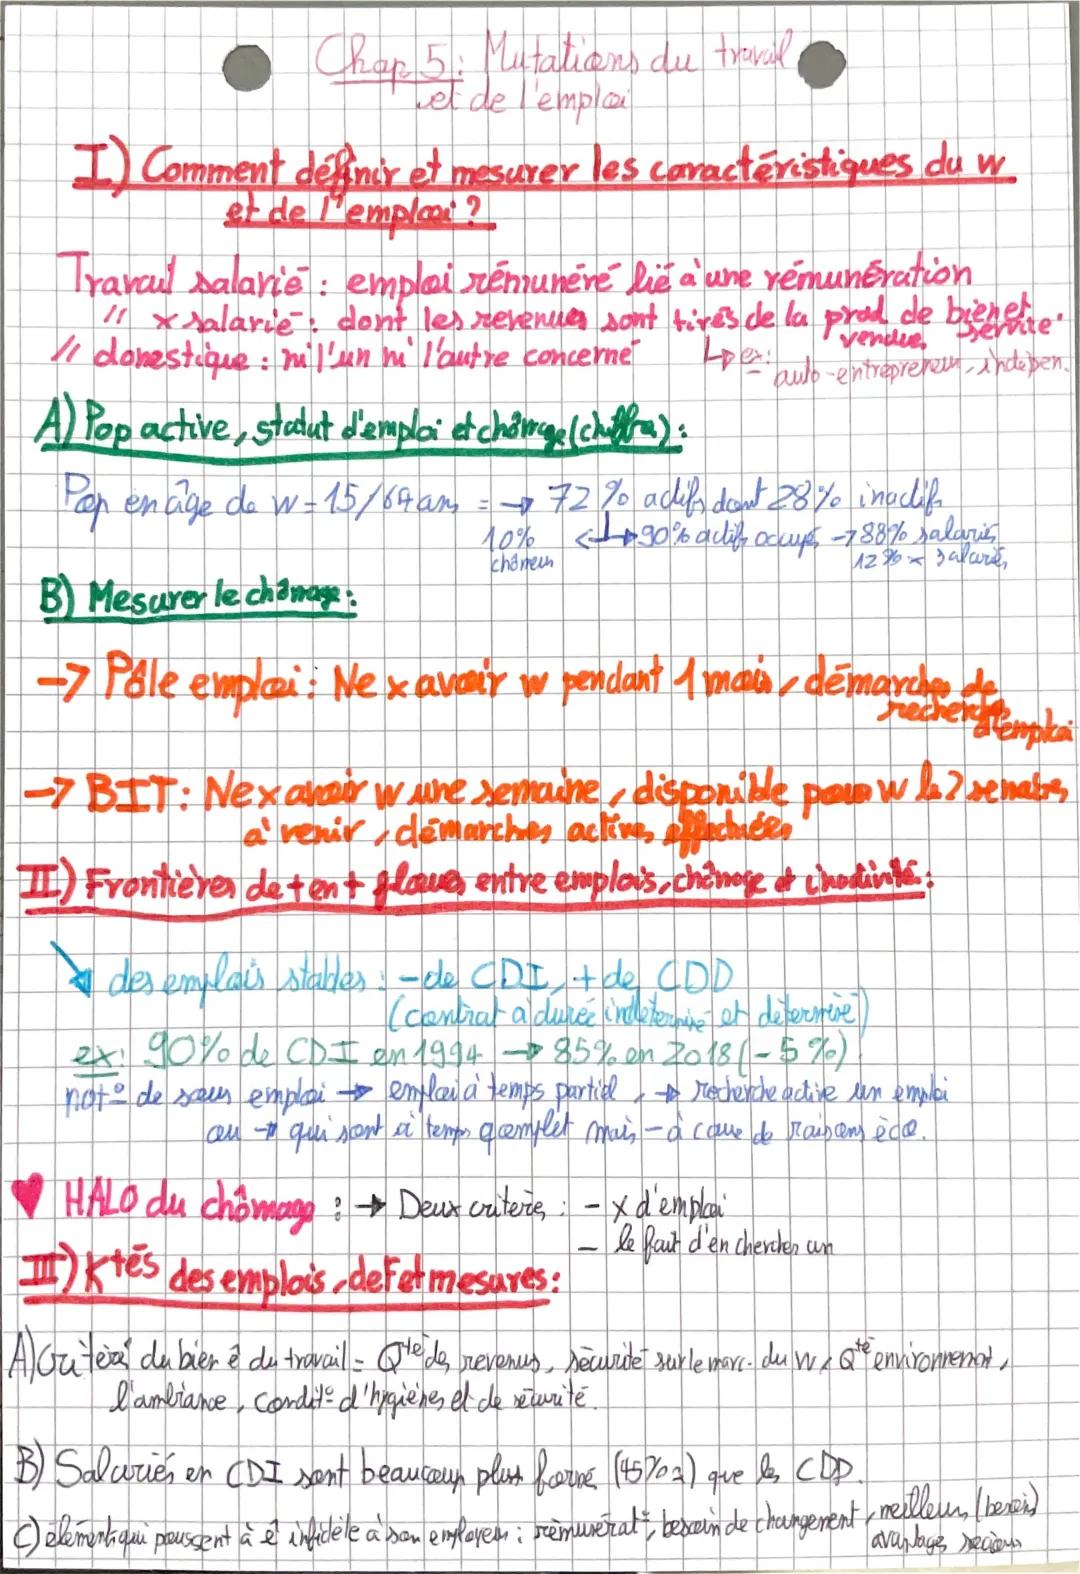 Chap 5 : Mutations du travail
et de l'emploi
I) Comment définir et mesurer les caractéristiques du w
et de l'emploi ?
Travail salarié : emploi rémunéré lié à une rémunération
// x salarié : dont les revenus sont tirés de la prod de bien et service
vendue
// domestique : ni l'un ni l'autre concerné ↳ ex :
auto-entrepreneur, indépen.
A) Pop active, statut d'emploi et chômage (chiffra) :
Pop en âge de w = 15/64 ans = → 72 % actifs dont 28% inactifs
10% ↔ 90% actifs occupés → 88% salariés
chômeurs 12% x salariés
B) Mesurer le chômage :
→ Pôle emploi : Ne x avoir w pendant 1 mois, démarches de
recherches d'emploi
→ BIT : Ne x avoir w une semaine, disponible pour w les 2 semaines
à venir, démarches actives effectuées
II) Frontières de + en + floues entre emplois, chômage et inactivité :
↘ des emplois stables : - de CDI, + de CDD
(contrat à durée indéterminé et déterminé)
ex : 90% de CDI en 1994 → 85% en 2018 (-5%)
not° de sous emploi → emploi à temps partiel, → recherche active un emploi
ou → qui sont à temps complet mais - à cause de raisons éco.
♥ HALO du chômage : → Deux critères : - x d'emploi
- le fait d'en chercher un
III) Ktés des emplois, def et mesures :
A) Critères du bien ê du travail = Qté des revenus, sécurité sur le marc. du w, Qté environnement,
l'ambiance, condit° d'hygiènes et de sécurité.
B) Salariés en CDI sont beaucoup plus formé (45%) que les CDD.
C) éléments qui poussent à ê infidèle à son employeur : rémunérat°, besoin de changement, meilleurs (besoin)
avantages sociaux